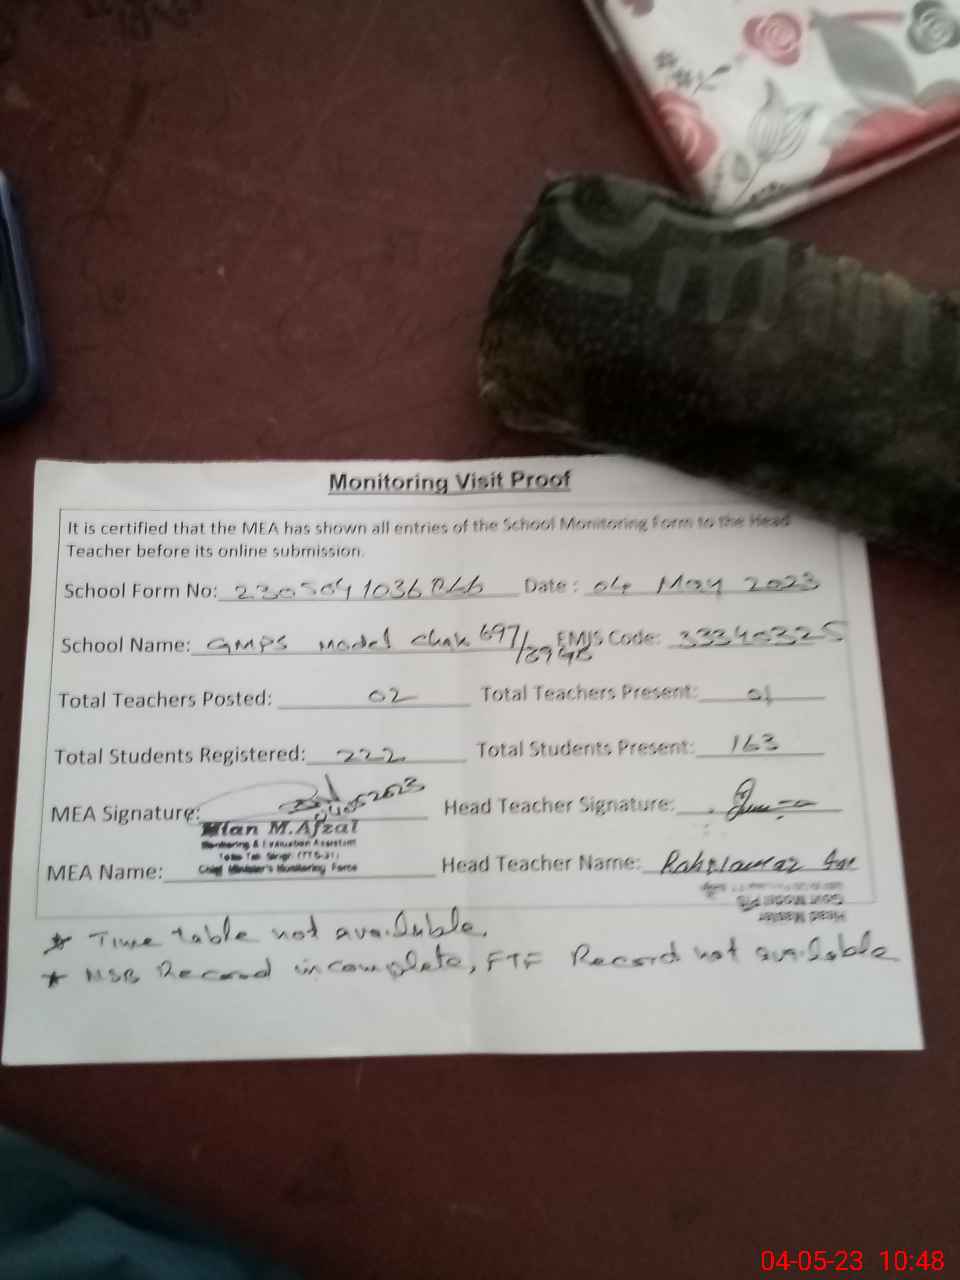 Monitoring Visit Proof
It is certified that the MEA has shown all entries of the School Monitoring Form to the Head
Teacher before its online submission.
School Form No: Date: 04 May 2023
School Name: GMPS model Chak 697/39GB EMIS Code: 33340325
Total Teachers Posted: 02 Total Teachers Present: 01
Total Students Registered: 222 Total Students Present: 163
MEA Signature: Head Teacher Signature:
Mian M.Afzal
Monitoring & Evaluation Assistant
Chief Minister's Monitoring Force
MEA Name: Head Teacher Name:
Head Master
* Time table not available.
* NSB Record incomplete, FTF Record not available
04-05-23 10:48